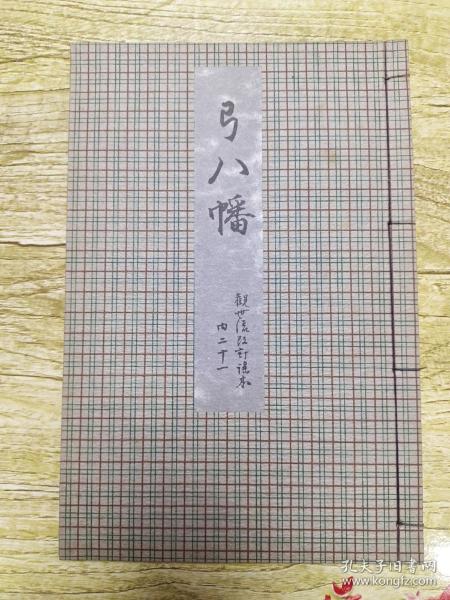 弓八幡
觀世流改訂謠本
内二十一
孔夫子旧书网
www.kongfz.com